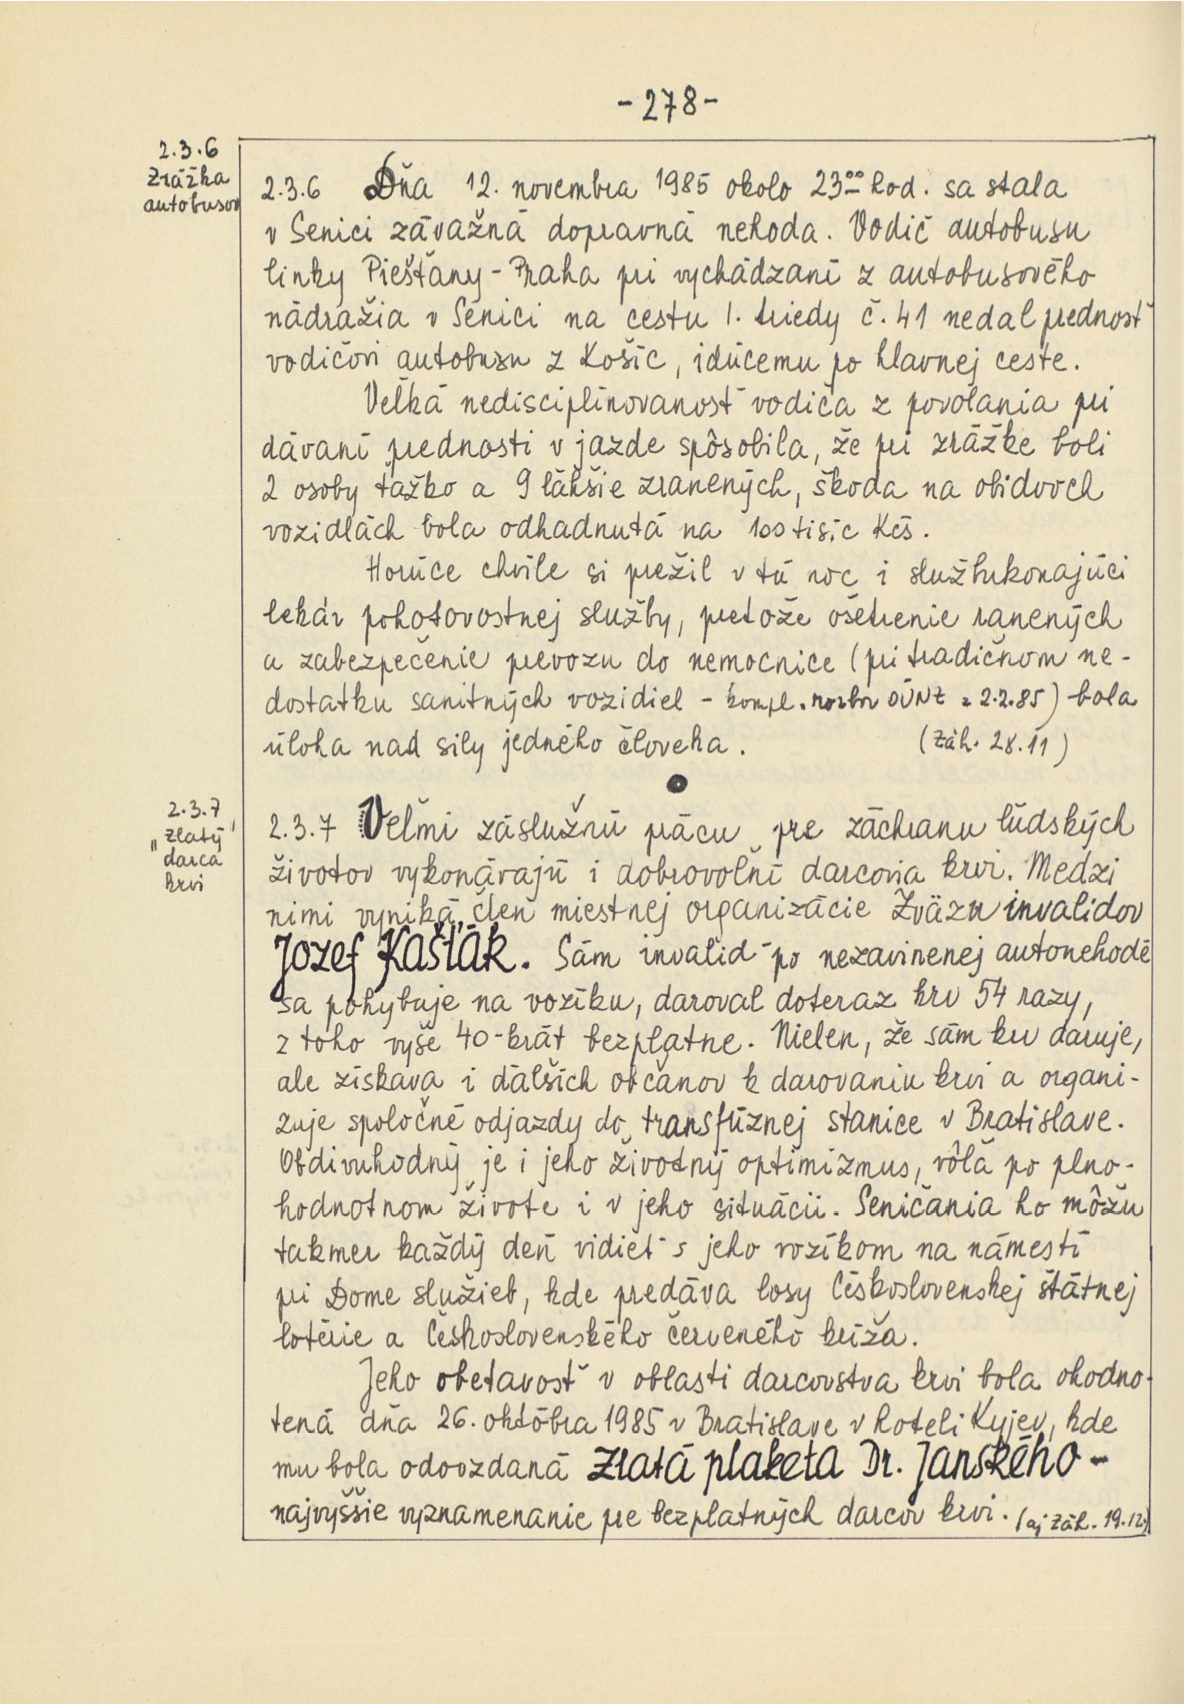 -278-
2.3.6
Zrážka
autobusov
2.3.6 Dňa 12. novembra 1985 okolo 23⁰⁰ hod. sa stala
v Senici závažná dopravná nehoda. Vodič autobusu
linky Piešťany - Praha pri vychádzaní z autobusového
nádražia v Senici na cestu I. triedy č. 41 nedal prednosť
vodičovi autobusu z Košíc, idúcemu po hlavnej ceste.
Veľká nedisciplinovanosť vodiča z povolania pri
dávaní prednosti v jazde spôsobila, že pri zrážke boli
2 osoby ťažko a 9 ľahšie zranených, škoda na obidvoch
vozidlách bola odhadnutá na 100 tisíc Kčs.
Horúce chvíle si prežil v tú noc i službukonajúci
lekár pohotovostnej služby, pretože ošetrenie ranených
a zabezpečenie prevozu do nemocnice (pri tradičnom ne-
dostatku sanitných vozidiel - kompl. rozbor OÚNZ z 2.2.85) bola
úloha nad sily jedného človeka. (Záh. 28.11)
2.3.7
"Zlatý"
darca
krvi
2.3.7 Veľmi záslužnú prácu pre záchranu ľudských
životov vykonávajú i dobrovoľní darcovia krvi. Medzi
nimi vyniká člen miestnej organizácie Zväzu invalidov
Jozef Kašták. Sám invalid - po nezavinenej autonehode
sa pohybuje na vozíku, daroval doteraz krv 54 razy,
z toho vyše 40-krát bezplatne. Nielen, že sám krv daruje,
ale získava i ďalších občanov k darovaniu krvi a organi-
zuje spoločné odjazdy do transfúznej stanice v Bratislave.
Obdivuhodný je i jeho životný optimizmus, vôľa po plno-
hodnotnom živote i v jeho situácii. Seničania ho môžu
takmer každý deň vidieť s jeho vozíkom na námestí
pri Dome služieb, kde predáva losy Československej štátnej
lotérie a Československého červeného kríža.
Jeho obetavosť v oblasti darcovstva krvi bola ohodno-
tená dňa 26. októbra 1985 v Bratislave v hoteli Kyjev, kde
mu bola odovzdaná Zlatá plaketa Dr. Janského -
najvyššie vyznamenanie pre bezplatných darcov krvi. (aj Záh. 19.12)